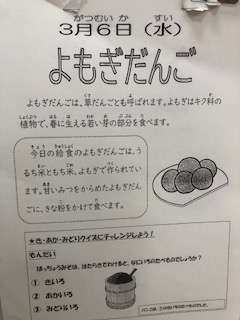 3月6日（水）
よもぎだんご
よもぎだんごは、草だんごとも呼ばれます。よもぎはキク科の
植物で、春に生える若い芽の部分を食べます。
今日の給食のよもぎだんごは、う
るち米ともち米、よもぎで作られてい
ます。甘いみつをからめたよもぎだん
ごに、きな粉をかけて食べます。
★き・あか・みどりクイズにチャレンジしよう！
もんだい
はっちょうみそは、はたらきでわけると、なにいろのたべものでしょうか？
① きいろ
② あかいろ
③ みどりいろ